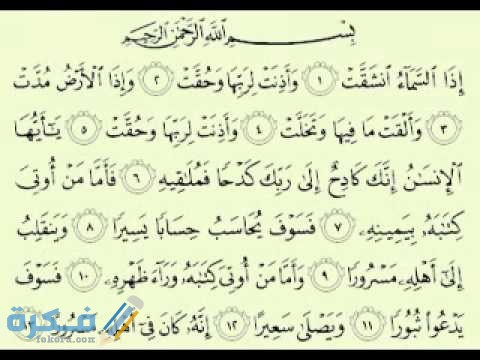 بِسْمِ ٱللَّهِ ٱلرَّحْمَٰنِ ٱلرَّحِيمِ
إِذَا ٱلسَّمَآءُ ٱنشَقَّتْ ١ وَأَذِنَتْ لِرَبِّهَا وَحُقَّتْ ٢ وَإِذَا ٱلْأَرْضُ مُدَّتْ
٣ وَأَلْقَتْ مَا فِيهَا وَتَخَلَّتْ ٤ وَأَذِنَتْ لِرَبِّهَا وَحُقَّتْ ٥ يَٰٓأَيُّهَا
ٱلْإِنسَٰنُ إِنَّكَ كَادِحٌ إِلَىٰ رَبِّكَ كَدْحًا فَمُلَٰقِيهِ ٦ فَأَمَّا مَنْ أُوتِىَ
كِتَٰبَهُۥ بِيَمِينِهِۦ ٧ فَسَوْفَ يُحَاسَبُ حِسَابًا يَسِيرًا ٨ وَيَنقَلِبُ
إِلَىٰٓ أَهْلِهِۦ مَسْرُورًا ٩ وَأَمَّا مَنْ أُوتِىَ كِتَٰبَهُۥ وَرَآءَ ظَهْرِهِۦ ١٠ فَسَوْفَ
يَدْعُوا۟ ثُبُورًا ١١ وَيَصْلَىٰ سَعِيرًا ١٢ إِنَّهُۥ كَانَ فِىٓ أَهْلِهِۦ مَسْرُورًا ١٣
فكرة
fokera.com